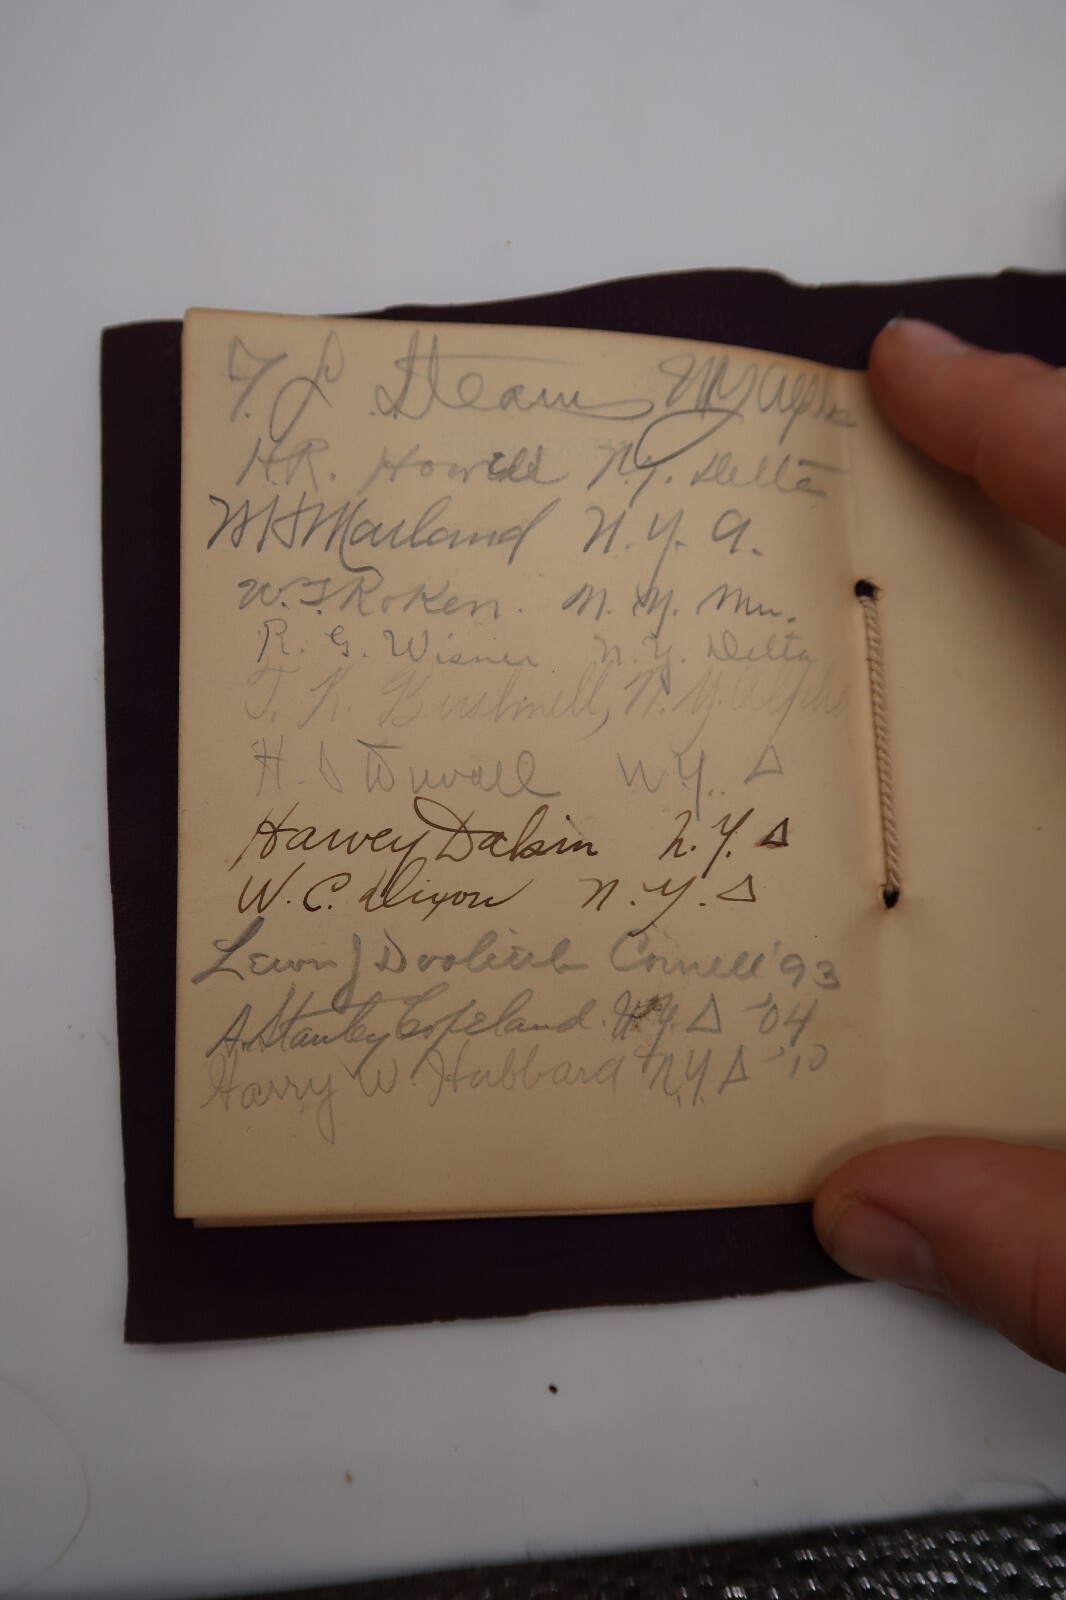 F. L. Stearns N.Y. Alpha
H.R. Howell N.Y. Delta
W H Marland N. Y. A.
W. F. Roken. N. Y. Mu.
R. G. Wisner N.Y. Delta
T. K. Bushnell, N.Y. Alpha
H. S N.Y. Δ
Harvey Dakin N.Y. Δ
W. C. Dixon N.Y. Δ
J Doolittle Cornell '93
A. Stanley Copeland. N.Y. Δ '04
Harry W. Hubbard N.Y. Δ '10